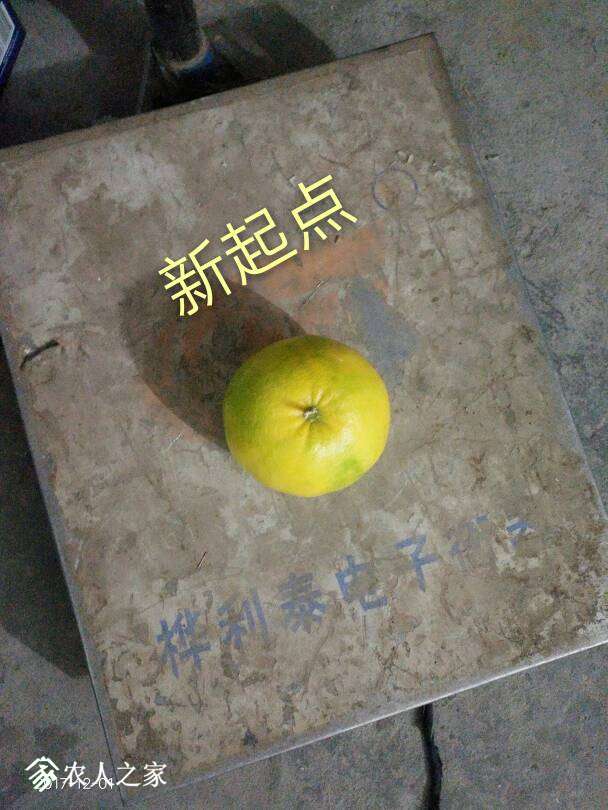 新起点
桦利泰电子
农人之家
2017-12-01